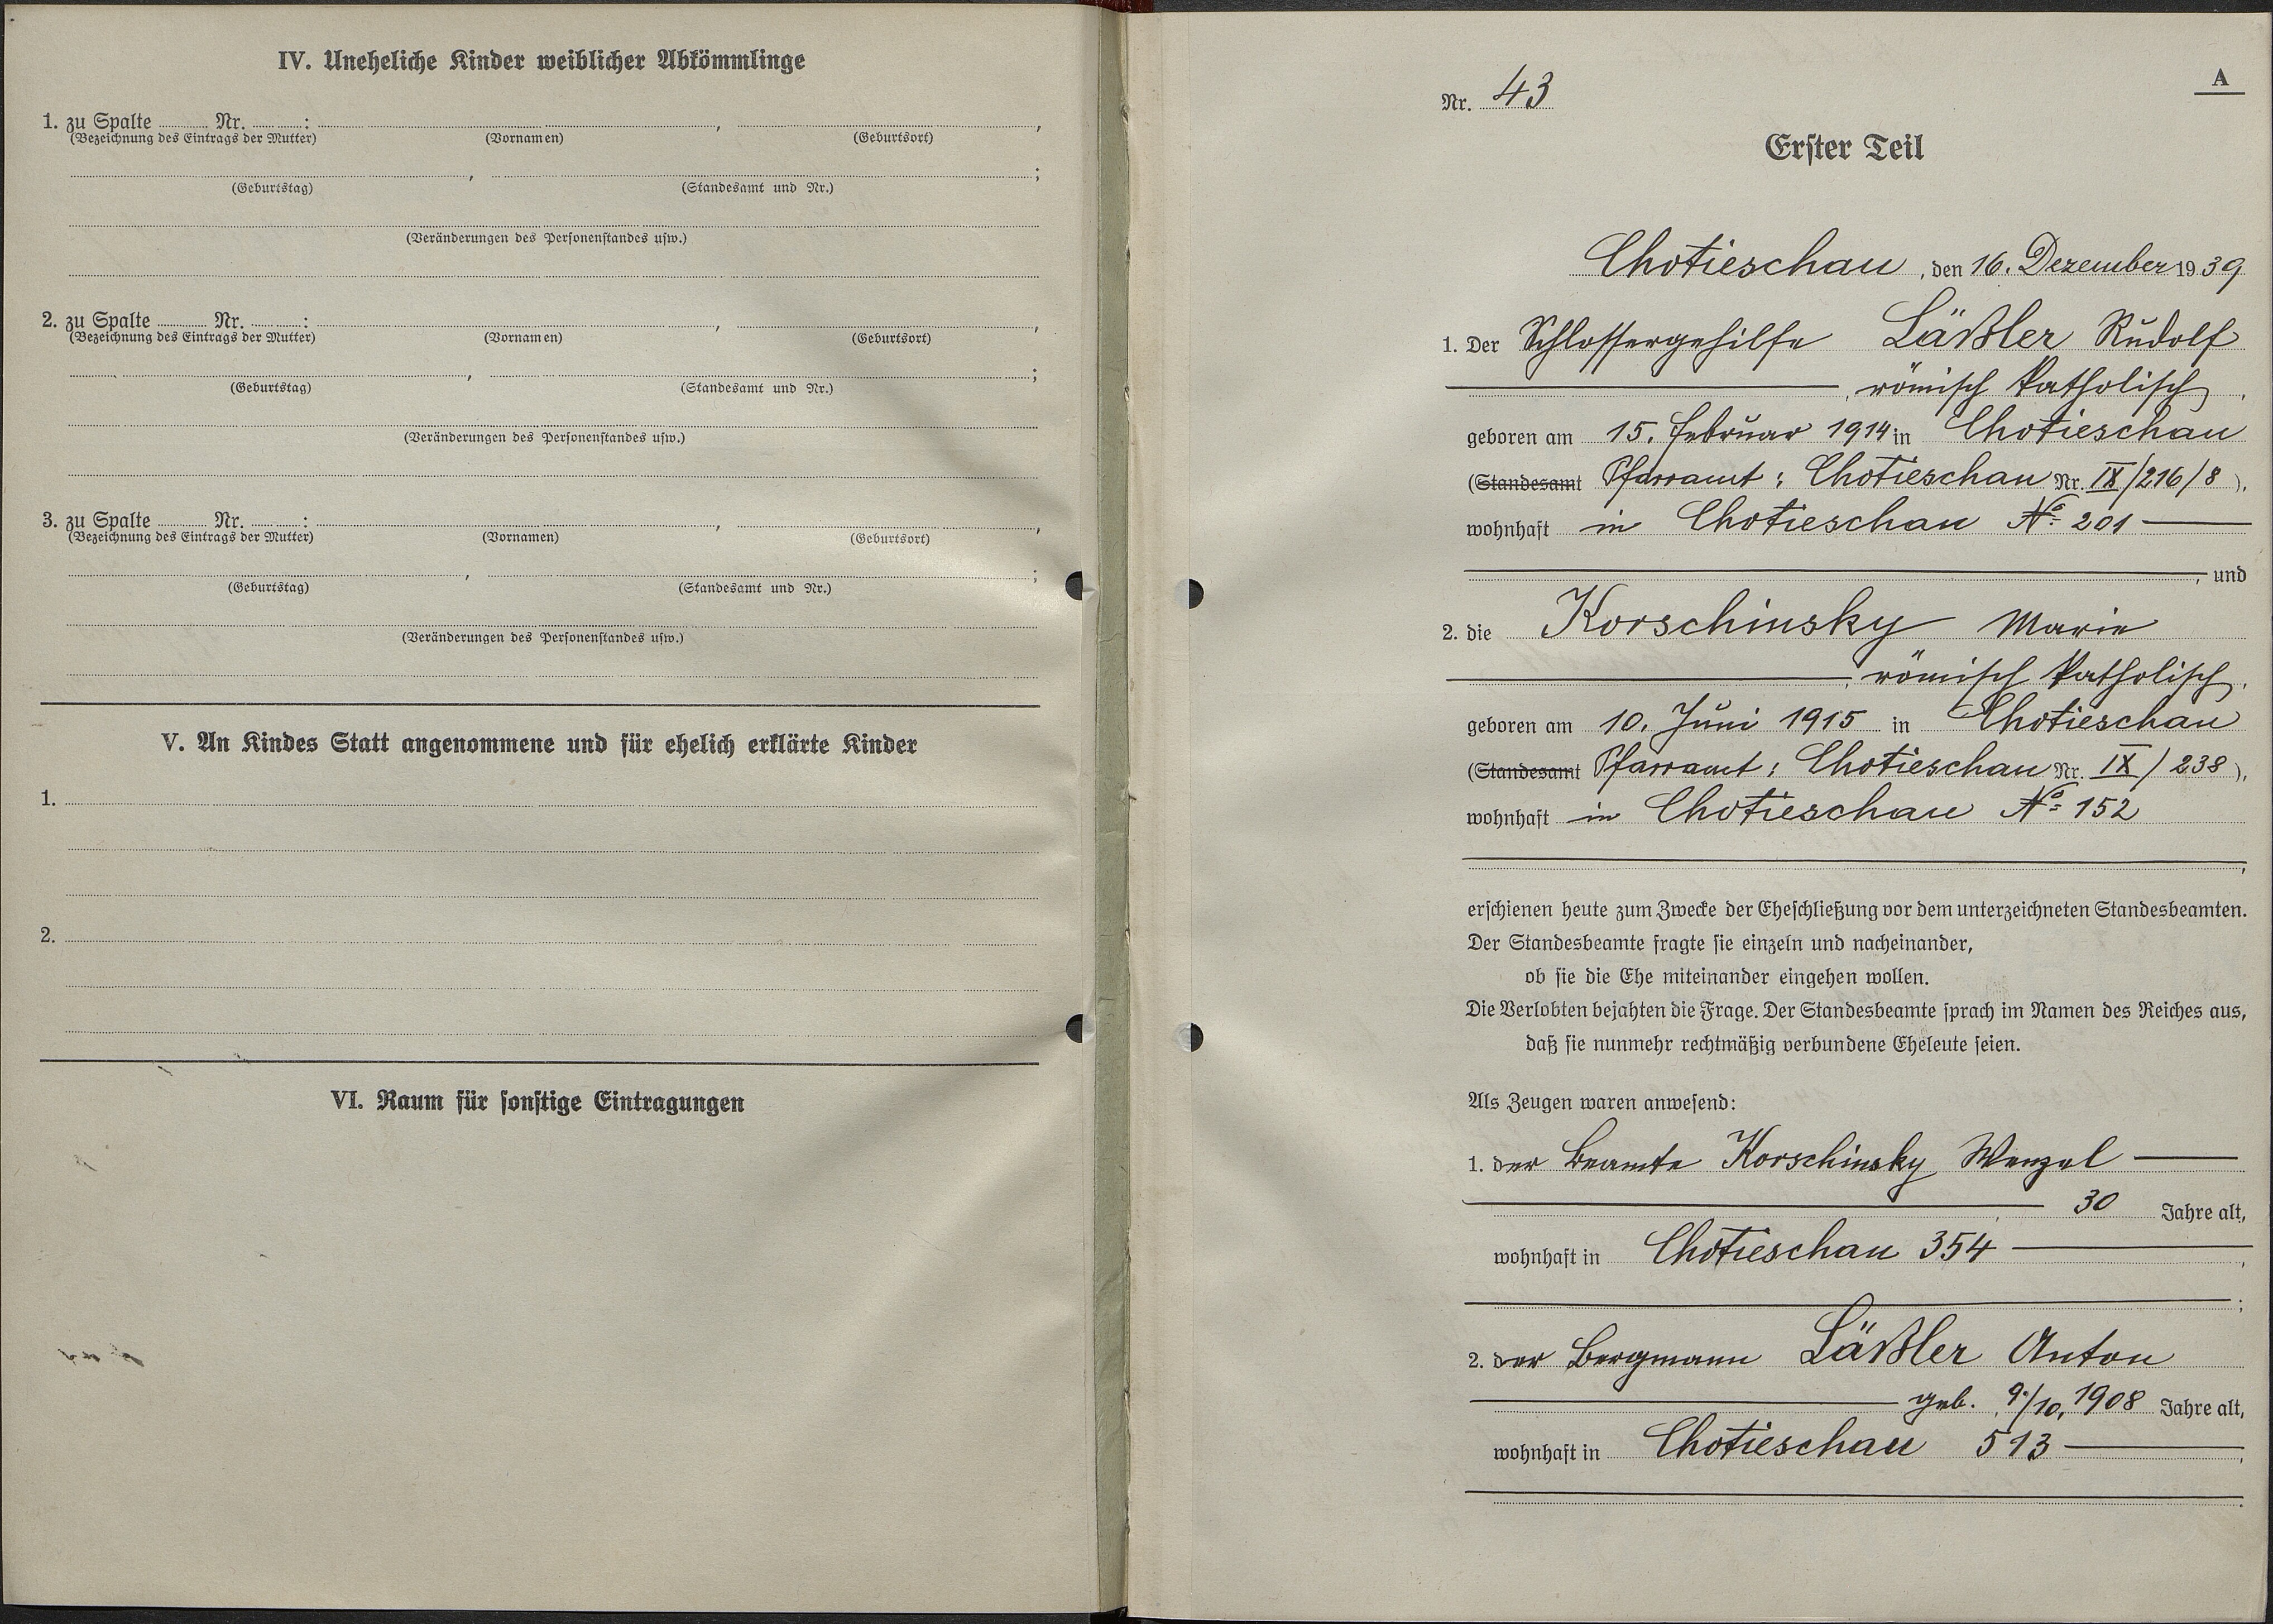 IV. Uneheliche Kinder weiblicher Abkömmlinge
1. zu Spalte ........ Nr. ........ : ........, ........,
(Bezeichnung des Eintrags der Mutter) (Vornamen) (Geburtsort)
........, ........;
(Geburtstag) (Standesamt und Nr.)
(Veränderungen des Personenstandes usw.)
2. zu Spalte ........ Nr. ........ : ........, ........,
(Bezeichnung des Eintrags der Mutter) (Vornamen) (Geburtsort)
........, ........;
(Geburtstag) (Standesamt und Nr.)
(Veränderungen des Personenstandes usw.)
3. zu Spalte ........ Nr. ........ : ........, ........,
(Bezeichnung des Eintrags der Mutter) (Vornamen) (Geburtsort)
........, ........;
(Geburtstag) (Standesamt und Nr.)
(Veränderungen des Personenstandes usw.)
V. An Kindes Statt angenommene und für ehelich erklärte Kinder
1.
2.
VI. Raum für sonstige Eintragungen
A
Nr. 43
Erster Teil
Chotieschau, den 16. Dezember 1939
1. Der Schlossergehilfe Läßler Rudolf
, römisch katholisch,
geboren am 15. Februar 1914 in Chotieschau
(Standesamt Pfarramt: Chotieschau Nr. IX/216/8),
wohnhaft in Chotieschau No 201
, und
2. die Korschinsky Marie
, römisch katholisch,
geboren am 10. Juni 1915 in Chotieschau
(Standesamt Pfarramt: Chotieschau Nr. IX/238),
wohnhaft in Chotieschau No 152
,
erschienen heute zum Zwecke der Eheschließung vor dem unterzeichneten Standesbeamten.
Der Standesbeamte fragte sie einzeln und nacheinander,
ob sie die Ehe miteinander eingehen wollen.
Die Verlobten bejahten die Frage. Der Standesbeamte sprach im Namen des Reiches aus,
daß sie nunmehr rechtmäßig verbundene Eheleute seien.
Als Zeugen waren anwesend:
1. der Beamte Korschinsky Wenzel
30 Jahre alt,
wohnhaft in Chotieschau 354
;
2. der Bergmann Läßler Anton
geb. 9./10. 1908 Jahre alt,
wohnhaft in Chotieschau 513
.